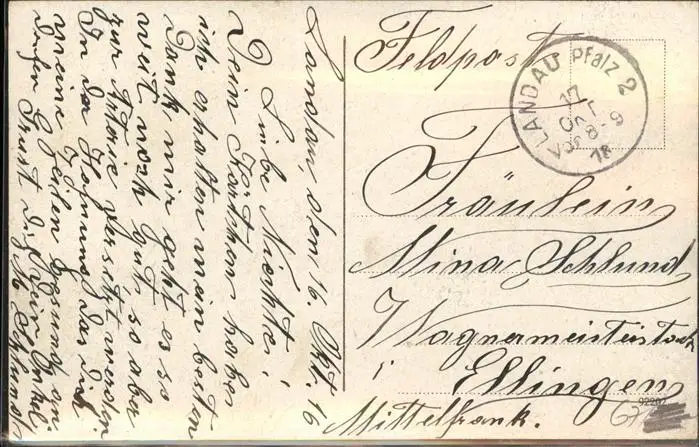 Landau, den 16. Okt. 16
Liebe Nichte!
Dein Kärtchen habe
ich erhalten mein besten
Dank mir geht es so
weit noch gut, so aber
zur  versetzt werden
In der Hofnung das dich
meine Zeilen gesund an
 Grust dich dein Onkel
M. Schlund
Feldpost
LANDAU Pfalz 2
17
OKT
Vor 8-9
Fräulein
Mina Schlund
Wagnermeisterstoch
i
Ellingen
Mittelfrank.
92267